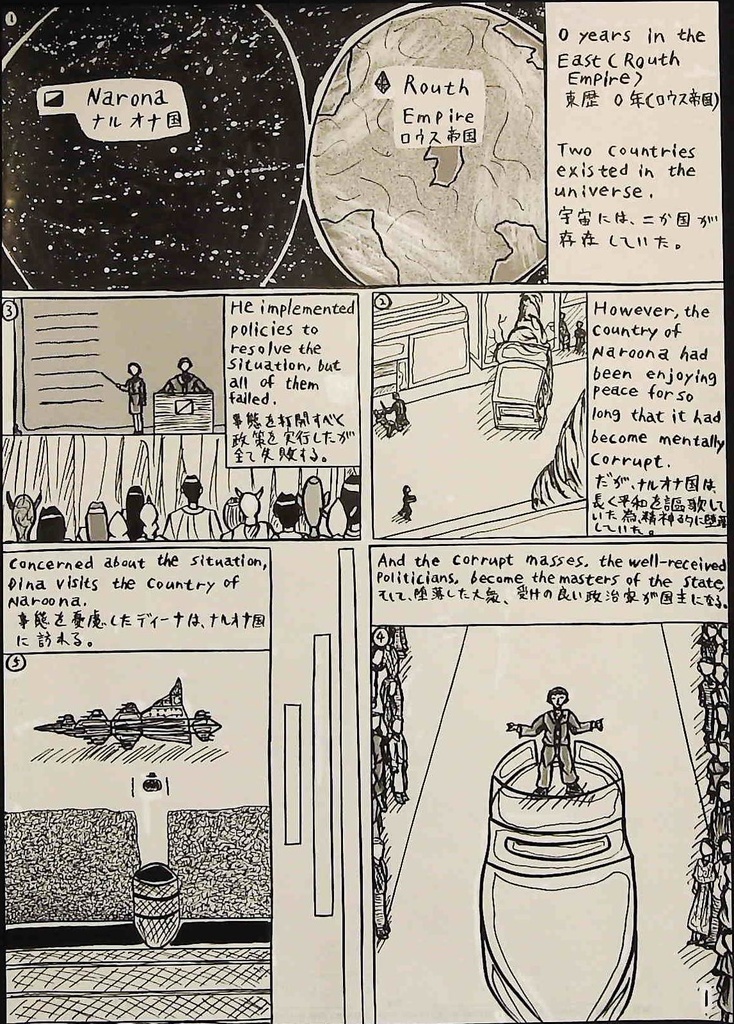 1
Narona
ナルオナ国
Routh
Empire
ロウス帝国
0 years in the
East (Routh
Empire)
東歴 0年(ロウス帝国)
Two countries
existed in the
universe.
宇宙には、二か国が
存在していた。
2
However, the
country of
Naroona had
been enjoying
peace for so
long that it had
become mentally
corrupt.
だが、ナルオナ国は、
長く平和を謳歌して
いた為、精神的に堕落
していた。
3
He implemented
policies to
resolve the
situation, but
all of them
failed.
事態を打開すべく
政策を実行したが
全て失敗する。
And the corrupt masses, the well-received
Politicians, become the masters of the state.
そして、堕落した大衆、受けの良い政治家が国主になる。
4
Concerned about the situation,
Dina visits the country of
Naroona.
事態を憂慮したディーナは、ナルオナ国
に訪れる。
5
1